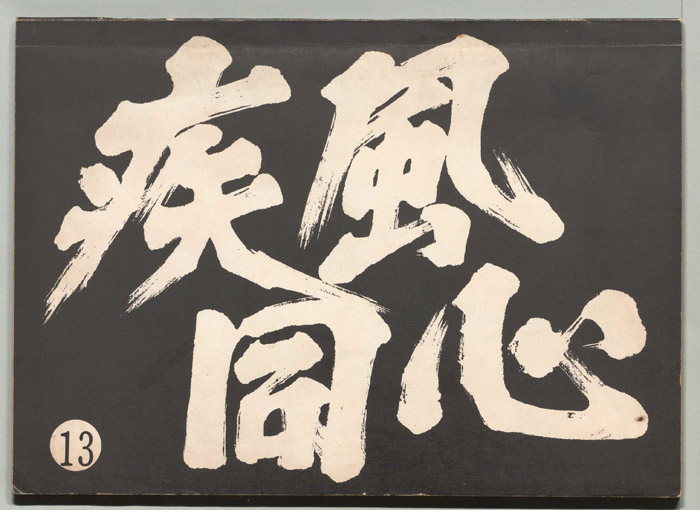 疾風
同心
13